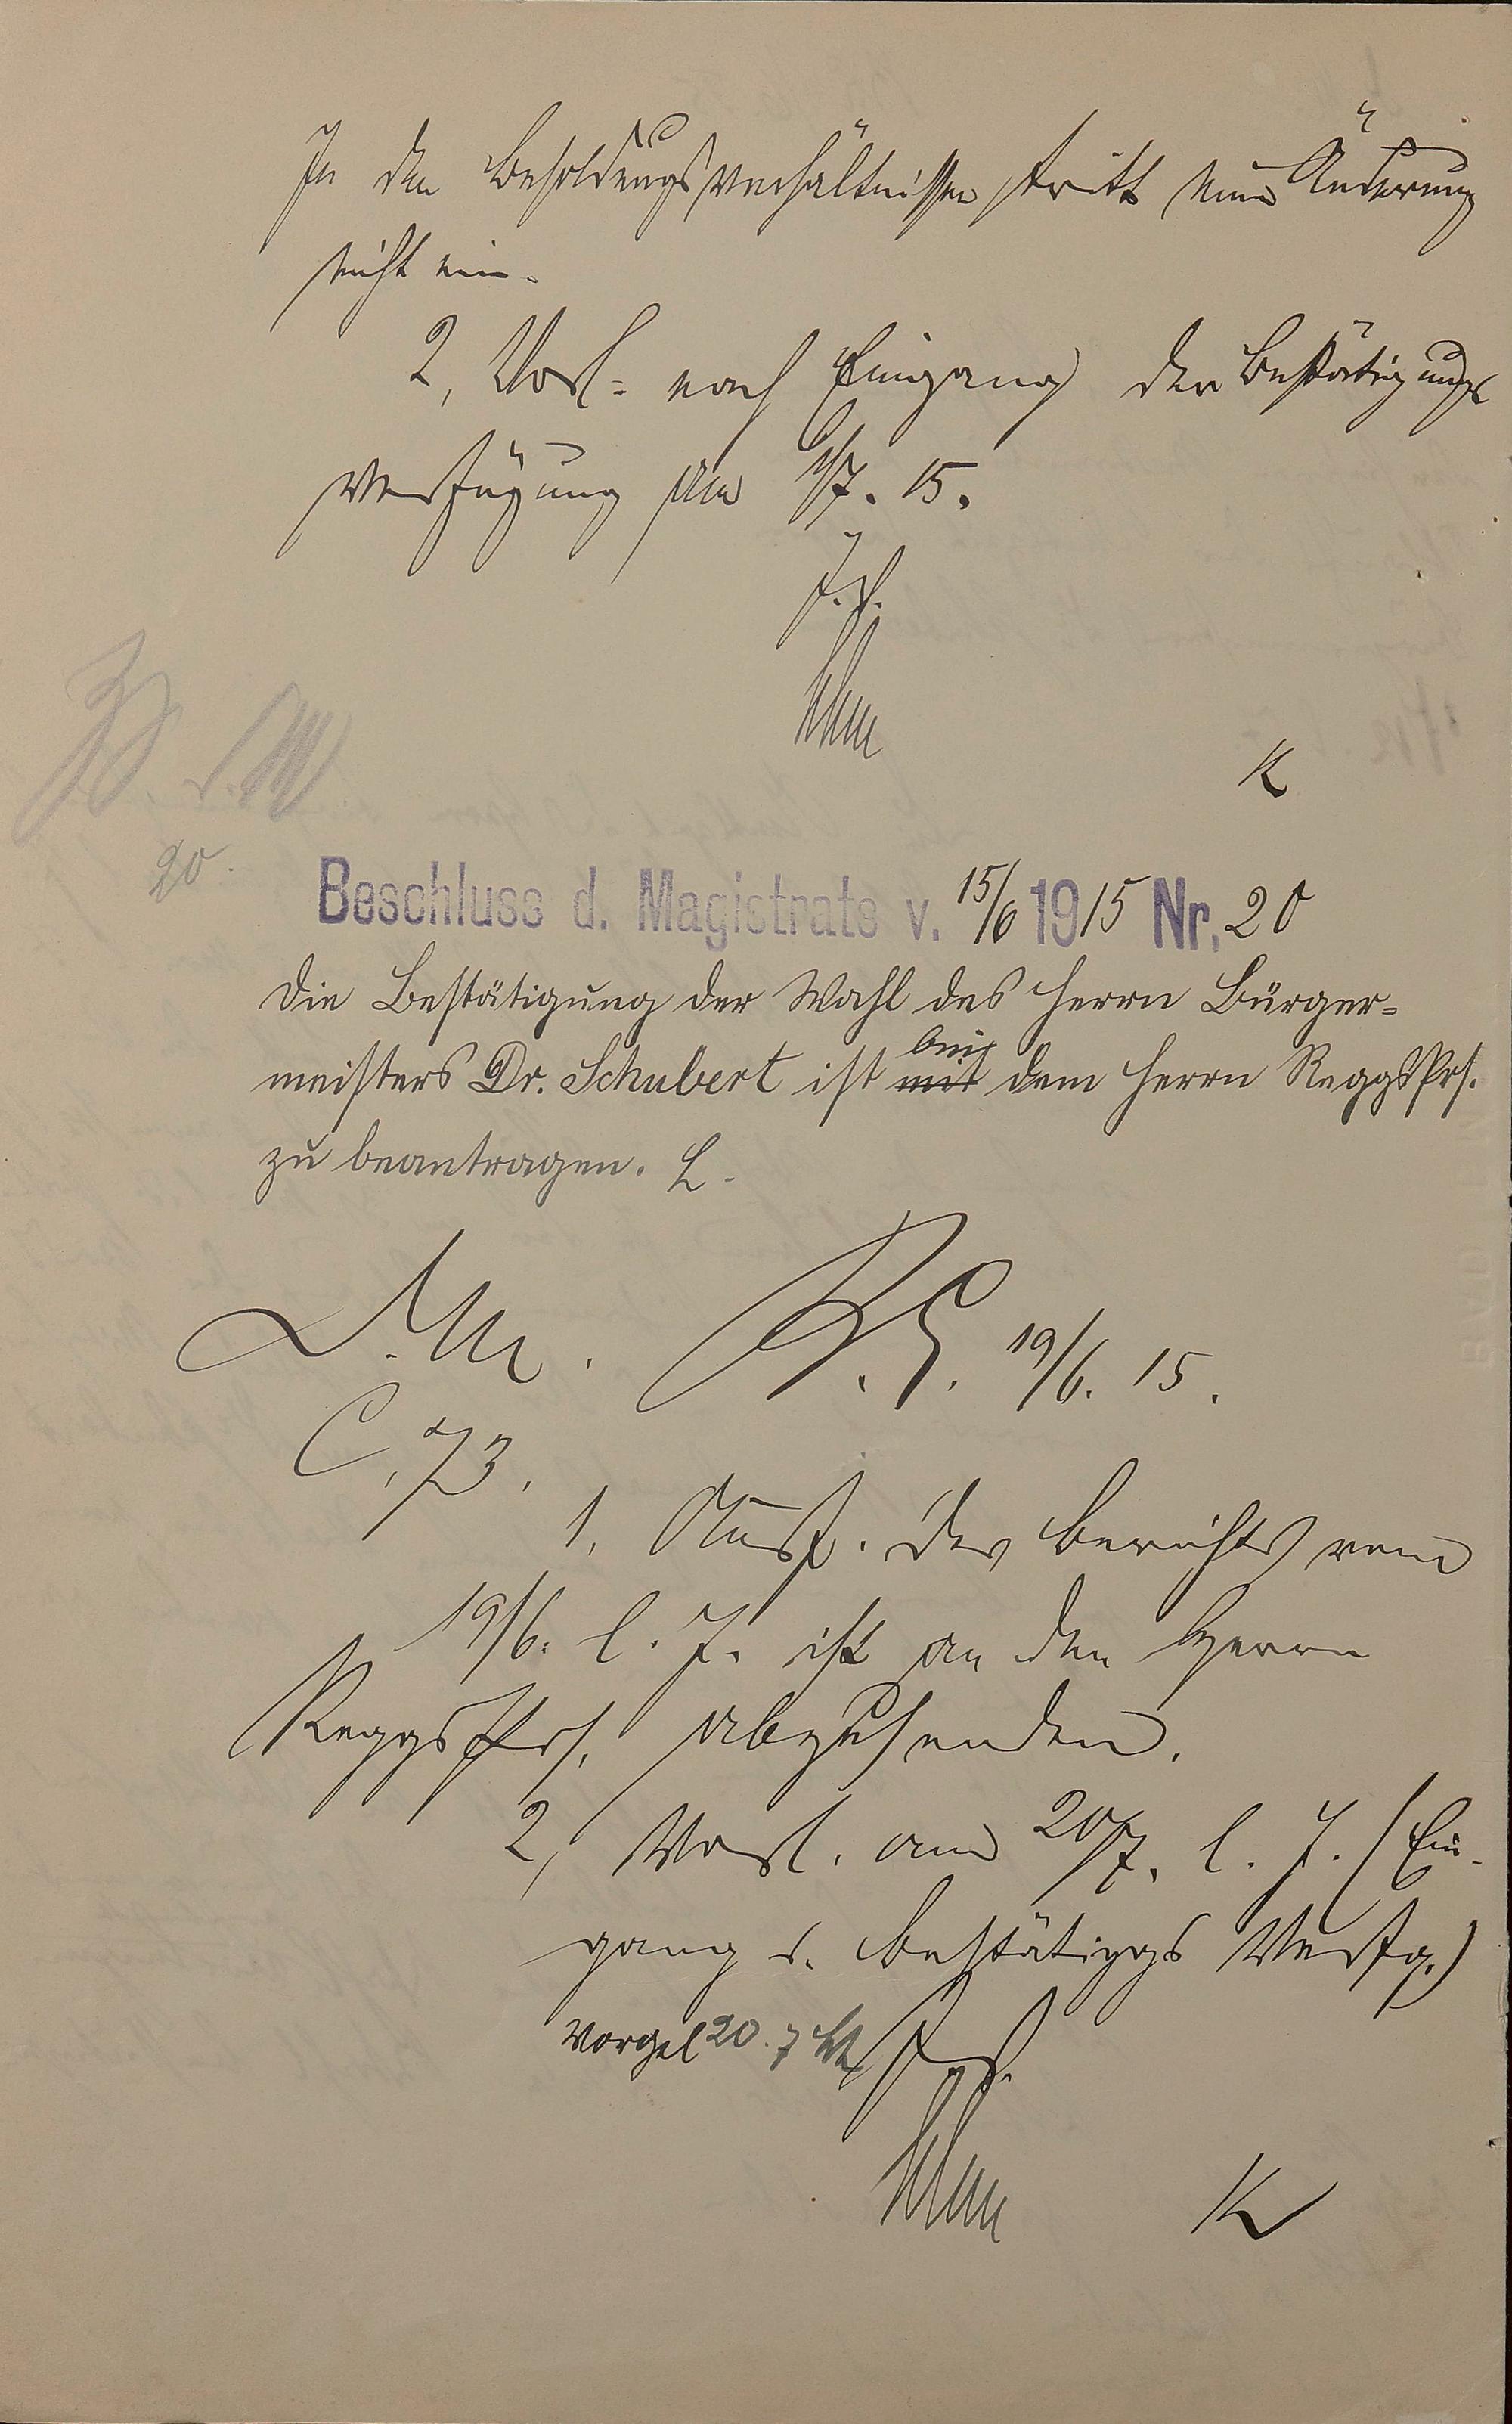 In den Besoldungsverhältnissen tritt eine Änderung
nicht ein.
2, Vorl. nach Eingang der Bestätigungs
verfügung am 1/7. 15.
K
20.
Beschluss d. Magistrats v. 15/6 1915 Nr. 20
Die Bestätigung der Wahl des Herrn Bürger-
meisters Dr. Schubert ist mit bei dem Herrn ReggsPrs.
zu beantragen. L.
D. M. 19/6. 15.
C. 73.
1, Ausf. des Berichts vom
19/6. l. J. ist an den Herrn
ReggsPrs. abzusenden.
2, Vorl. am 20/7. l. J. (Ein-
gang d. Bestätiggs Verfg.)
Vorgel 20. 7
K